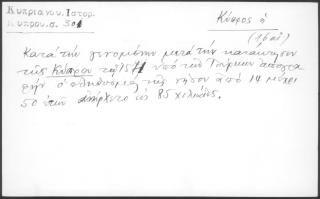 Κυπριανου. Ιστορ.
Κυπρου. σ. 301
Κύπρος ἡ
(16 αἰ)
Κατά τήν γενομένην μετά τήν κατάκτησιν
τῆς Κύπρου τῷ 1571 ὑπό τῶν Τούρκων ἀπογρα
φήν ὁ πληθυσμός τῆς νήσου ἀπό 14 μέχρι
50 ἐτῶν ἀνήρχετο εἰς 85 χιλιάδας.